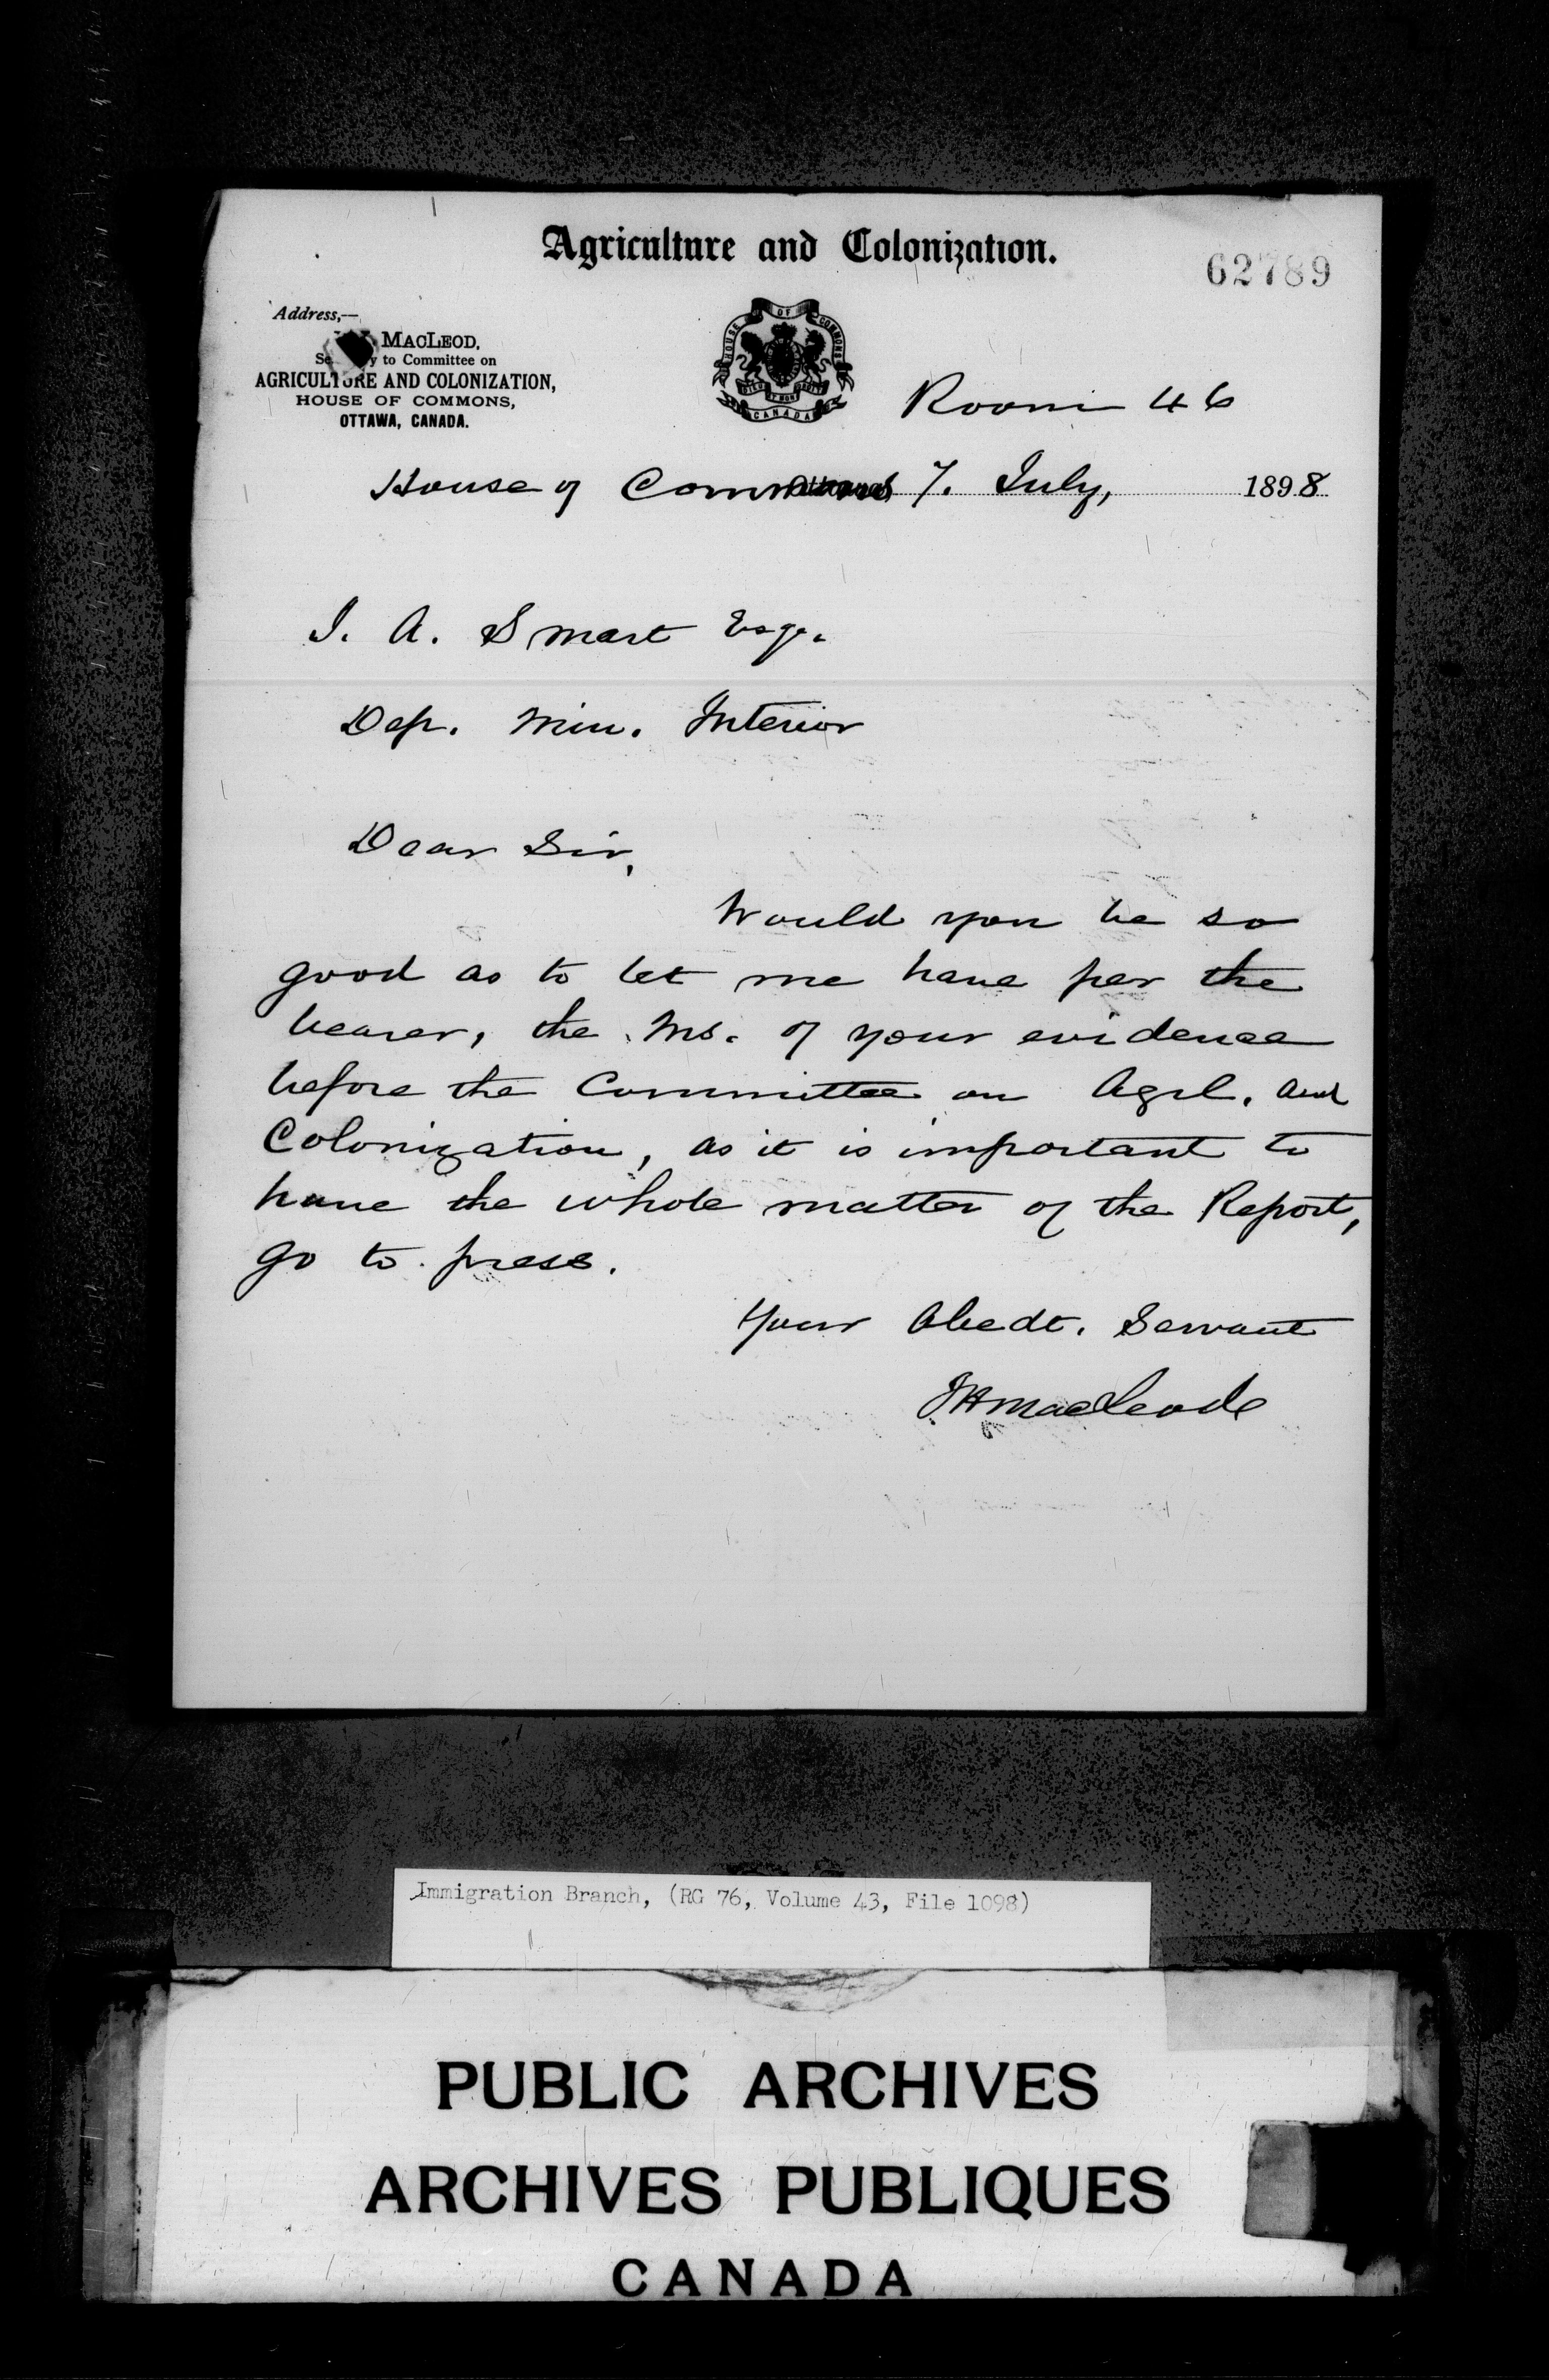 Agriculture and Colonization.
62789
Address,—
MACLEOD,
to Committee on
AGRICULTURE AND COLONIZATION,
HOUSE OF COMMONS,
OTTAWA, CANADA.
HOUSE OF COMMONS
DIEU ET MON DROIT
CANADA
Room 46
House of Commons 7. July, 1898
J. A. Smart Esqr.
Dep. Min. Interior
Dear Sir,
Would you be so
good as to let me have per the
bearer, the Ms. of your evidence
before the Committee on Agrl. and
Colonization, as it is important to
have the whole matter of the Report,
go to press.
Your Obedt. Servant
JH MacLeod
Immigration Branch, (RG 76, Volume 43, File 1098)
PUBLIC ARCHIVES
ARCHIVES PUBLIQUES
CANADA